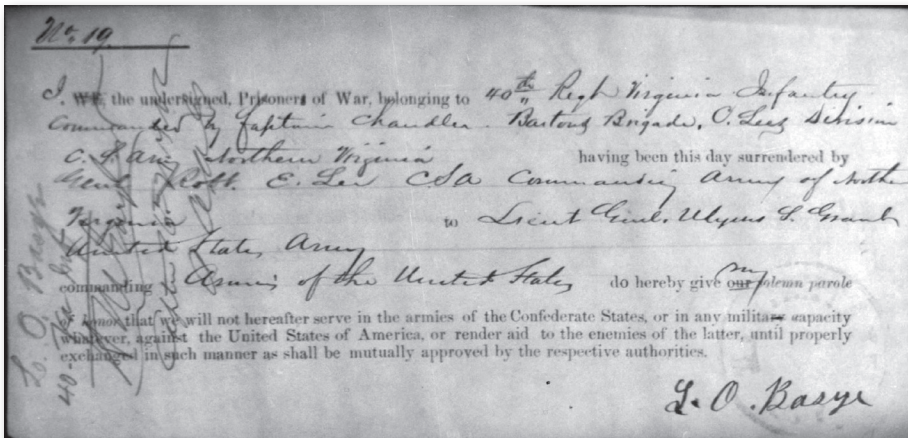 No. 19
I. WE, the undersigned, Prisoners of War, belonging to 40th Regt Virginia Infantry
Commanded by Captain Chandler Bartons Brigade, C. Lees Division
C. S. Army Northern Virginia having been this day surrendered by
Genl Robt. E. Lee CSA Commanding Army of North
Virginia to Lieut Genl. Ulyses S. Grant
United States Army
commanding Armies of the United States do hereby give our my solemn parole
of honor that we will not hereafter serve in the armies of the Confederate States, or in any military capacity
whatever, against the United States of America, or render aid to the enemies of the latter, until properly
exchanged in such manner as shall be mutually approved by the respective authorities.
L. O. Basye
L. O. Basye